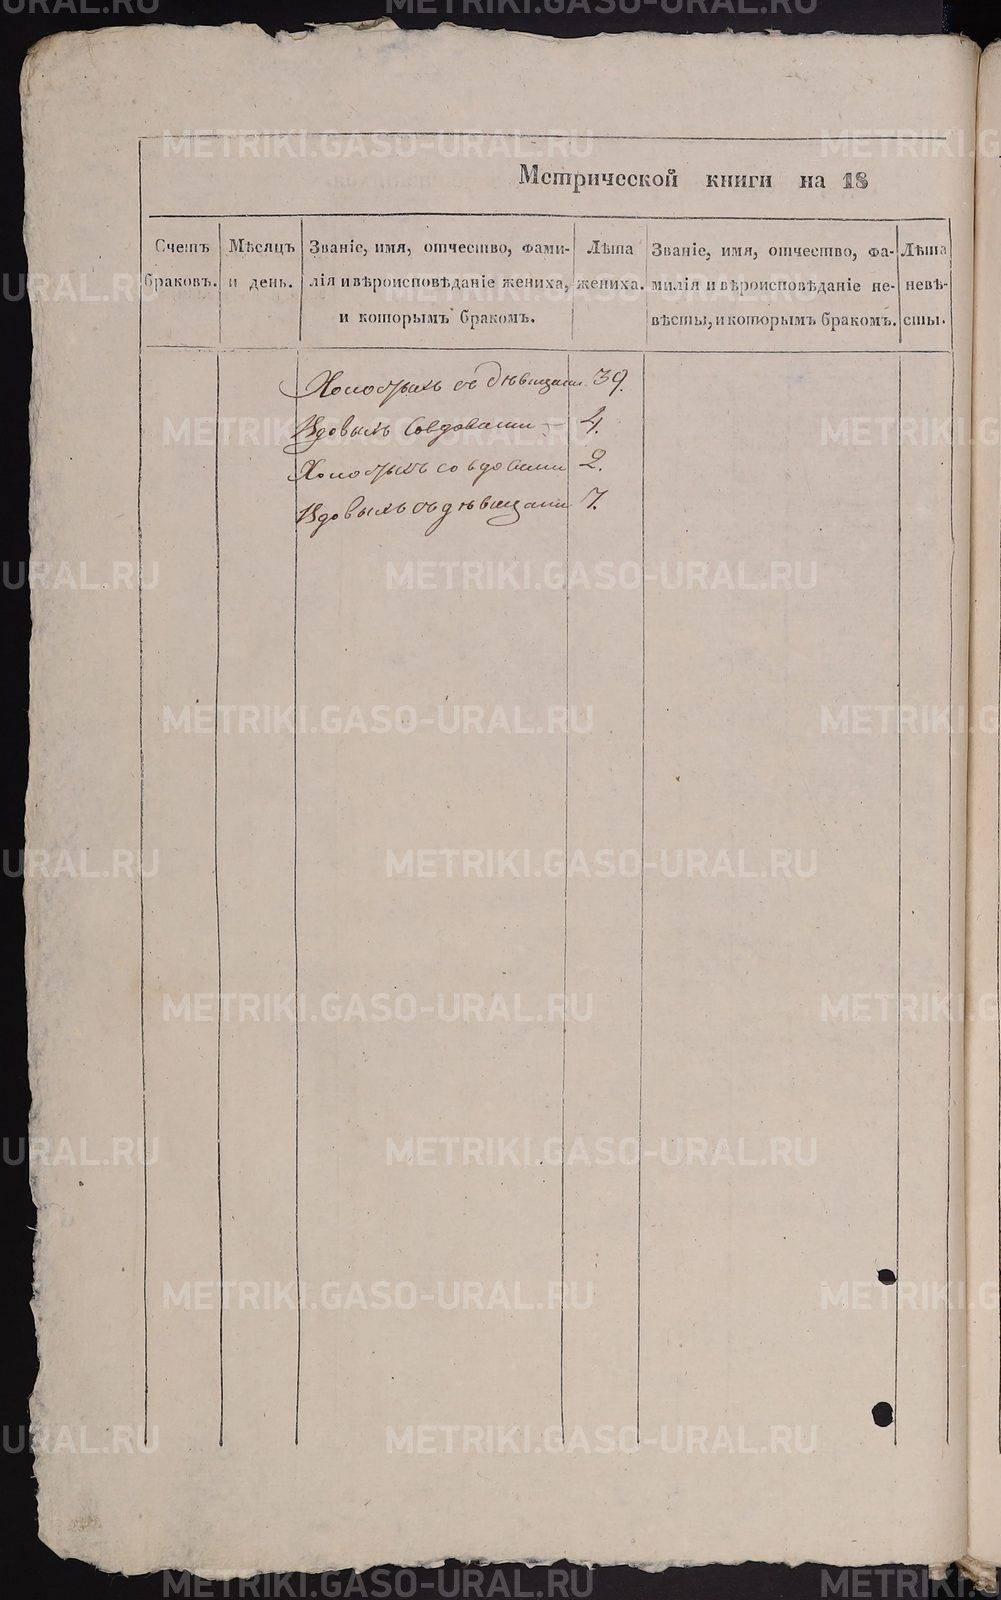 Метрической книги на 18
Счетъ браковъ.
Мѣсяцъ и день.
Званіе, имя, отчество, фами-
лія и вѣроисповѣданіе жениха,
и которымъ бракомъ.
Лѣта жениха.
Званіе, имя, отчество, фа-
милія и вѣроисповѣданіе не-
вѣсты, и которымъ бракомъ.
Лѣта
невѣ-
сты.
Холостыхъ съ дѣвицами 39.
Вдовыхъ со вдовами — 4.
Холостыхъ со вдовами 2.
Вдовыхъ съ дѣвицами 7.
METRIKI.GASO-URAL.RU